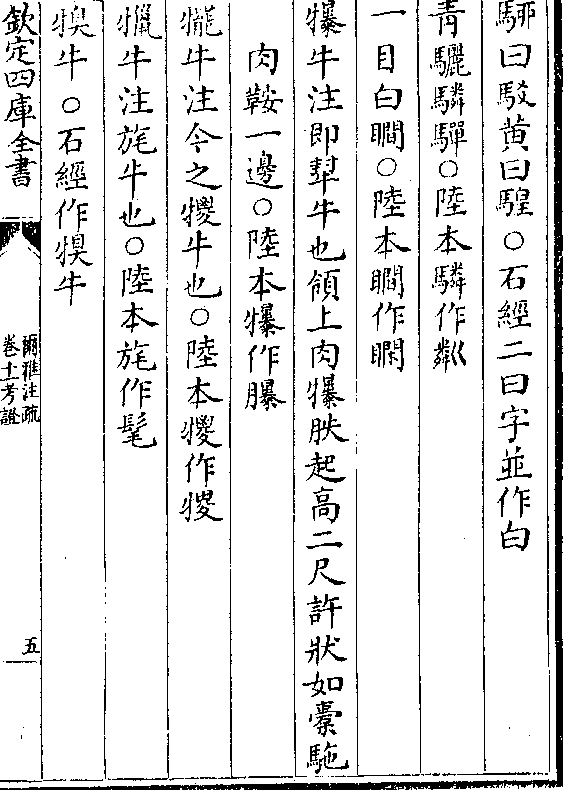 曰駁黄曰騜○石經二曰字並作白
青驪驎驒○陸本驎作粼
一目白瞷○陸本瞷作瞯
犦牛注即犎牛也領上肉犦胅起高二尺許狀如橐駞
肉鞍一邊○陸本犦作𦢊
犤牛注今之㹎牛也○陸本㹎作
犣牛注旄牛也○陸本旄作髦
牛○石經作犑牛
欽定四庫全書
爾雅注疏
卷十一考證
五